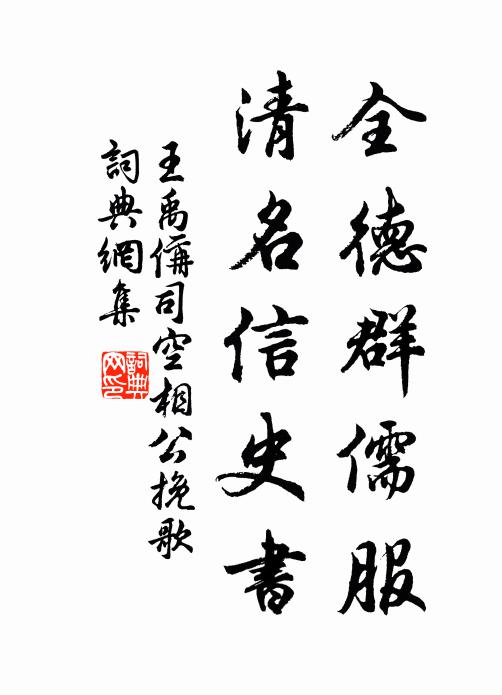 全德群儒服
清名信史書
王禹偁司空相公挽歌
詞典網集
詞典網印